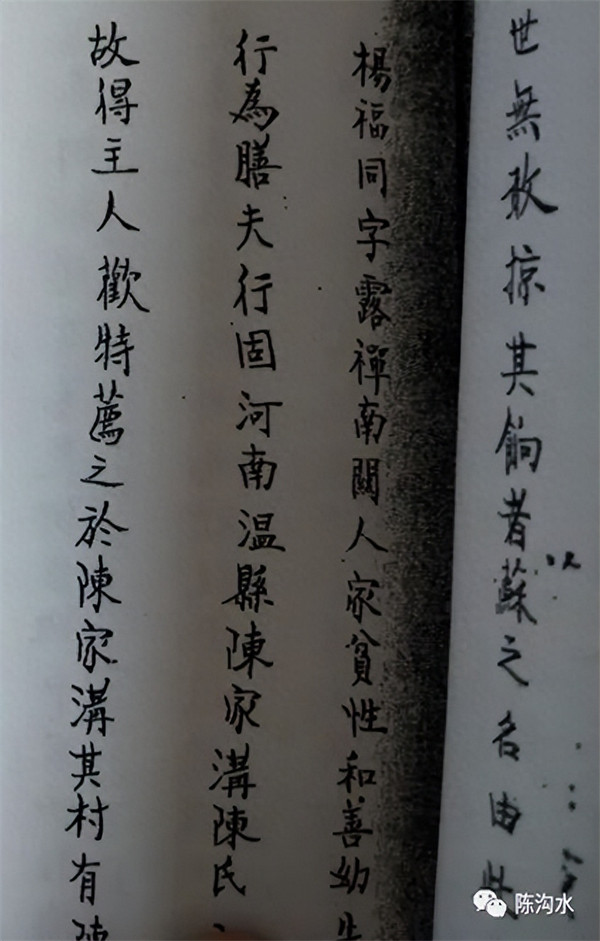 世無敢掠其餉者蘇之名由此
以
楊福同字露禪南關人家貧性和善幼
行為膳夫行固河南溫縣陳家溝陳氏
故得主人歡特薦之於陳家溝其村有陳
陈沟水